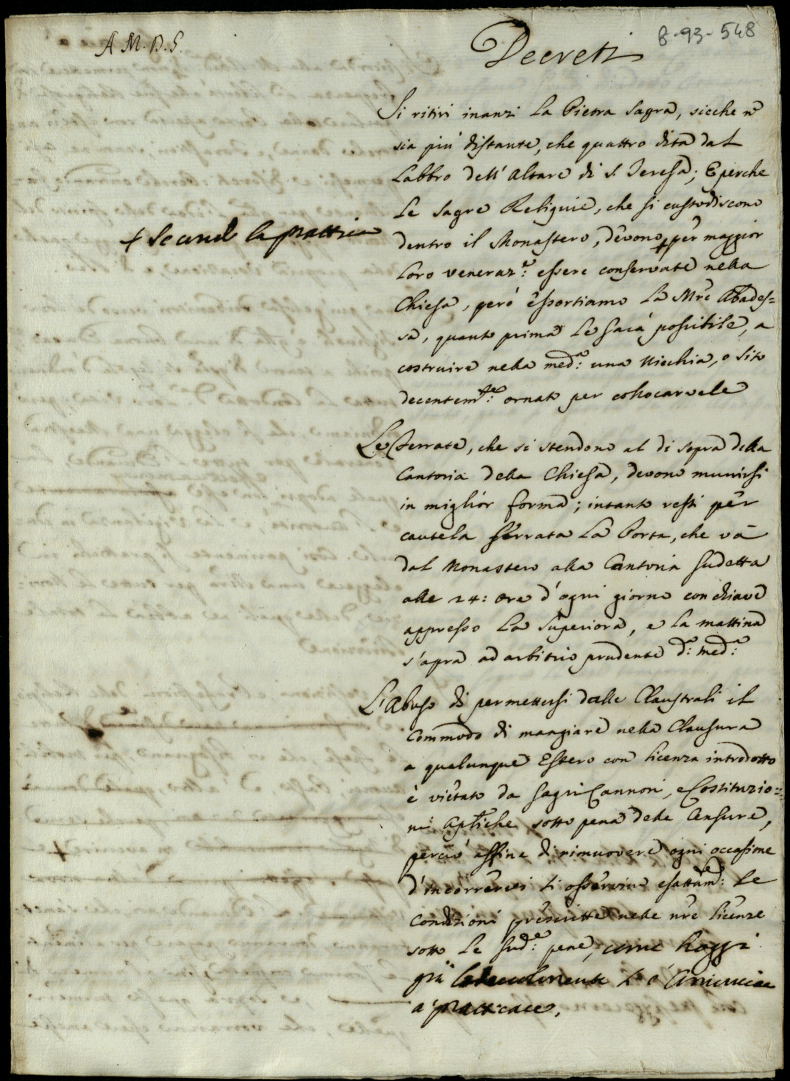 A. M. D. G.
8-93-548
Decreti
Si ritiri inanzi la Pietra Sagra, sicche nō
sia più distante, che quattro dita dal
Labbro dell'Altare di S. Teresa; E perche
le Sagre Reliquie, che si custodiscono
+ secund la prattica
dentro il Monastero, devono + per maggior
loro veneraz.e essere conservate nella
Chiesa, però essortiamo la Mre Abades=
sa, quanto prima le sarà possibile, a
costruire nella med.a una Nicchia, o sito
decentem.te ornato per collocarvele
Le Ferrate, che si stendono al di sopra della
Cantoria della Chiesa, devono munirsi
in miglior forma; intanto resti per
cautela serrata la Porta, che và
dal Monastero alla Cantoria sudetta
alle 24: ore d'ogni giorno con chiave
appresso la Superiora, e la mattina
s'apra ad arbitrio prudente d.a med.a
L'Abuso di permettersi dalle Claustrali il
commodo di mangiare nella Clausura
a qualunque Estero con licenza introdotto
è vietato da Sagri Cannoni, e Costituzio=
ni Aplīche sotto pena delle Censure,
perciò affine di rimuovere ogni occasione
d'incorrerci si osservino esattam.e le
condizioni prescritte nelle nre licenze
sotto le sud.e pene, come hoggi
già
si è cominciato
a pratticare.